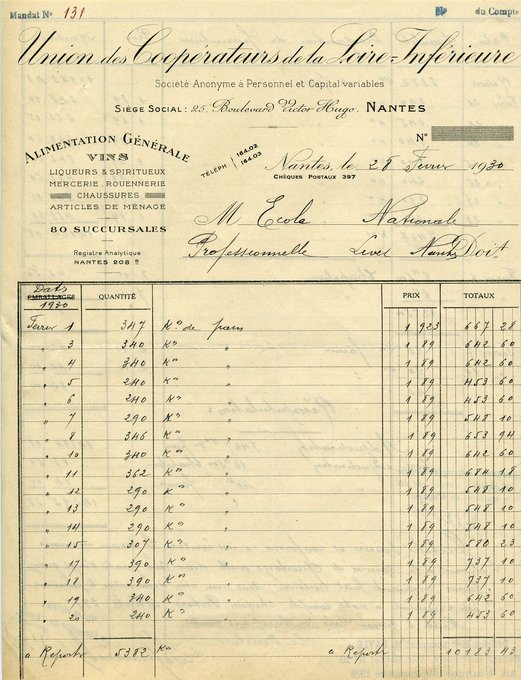 Mandat No 131 du Compte
Union des Coopérateurs de la Loire-Inférieure
Société Anonyme à Personnel et Capital variables
SIÈGE SOCIAL : 25, Boulevard Victor Hugo. NANTES
ALIMENTATION GÉNÉRALE
VINS
LIQUEURS & SPIRITUEUX
MERCERIE, ROUENNERIE
CHAUSSURES
ARTICLES DE MÉNAGE
80 SUCCURSALES
Registre Analytique
NANTES 208 B
TÉLÉPH. 164.02
164.03
No
Nantes, le 28 Fevrier 1930
CHÈQUES POSTAUX 397
M Ecole Nationale
Professionnelle Livet Nantes Doit
Dats
EMBALLAGES QUANTITÉ PRIX TOTAUX
1930
Fevrier 1 347 Kos de pain 1 923 667 28
" 3 340 Kos " 1 89 642 60
" 4 340 Kos " 1 89 642 60
" 5 240 Kos " 1 89 453 60
" 6 240 Kos " 1 89 453 60
" 7 290 Kos " 1 89 548 10
" 8 346 Kos " 1 89 653 94
" 10 340 Kos " 1 89 642 60
" 11 362 Kos " 1 89 684 18
" 12 290 Kos " 1 89 548 10
" 13 290 Kos " 1 89 548 10
" 14 290 Kos " 1 89 548 10
" 15 307 Kos " 1 89 580 23
" 17 390 Kos " 1 89 737 10
" 18 390 Kos " 1 89 737 10
" 19 340 Kos " 1 89 642 60
" 20 240 Kos " 1 89 453 60
a Reporter 5382 Kos a Reporter 10183 43